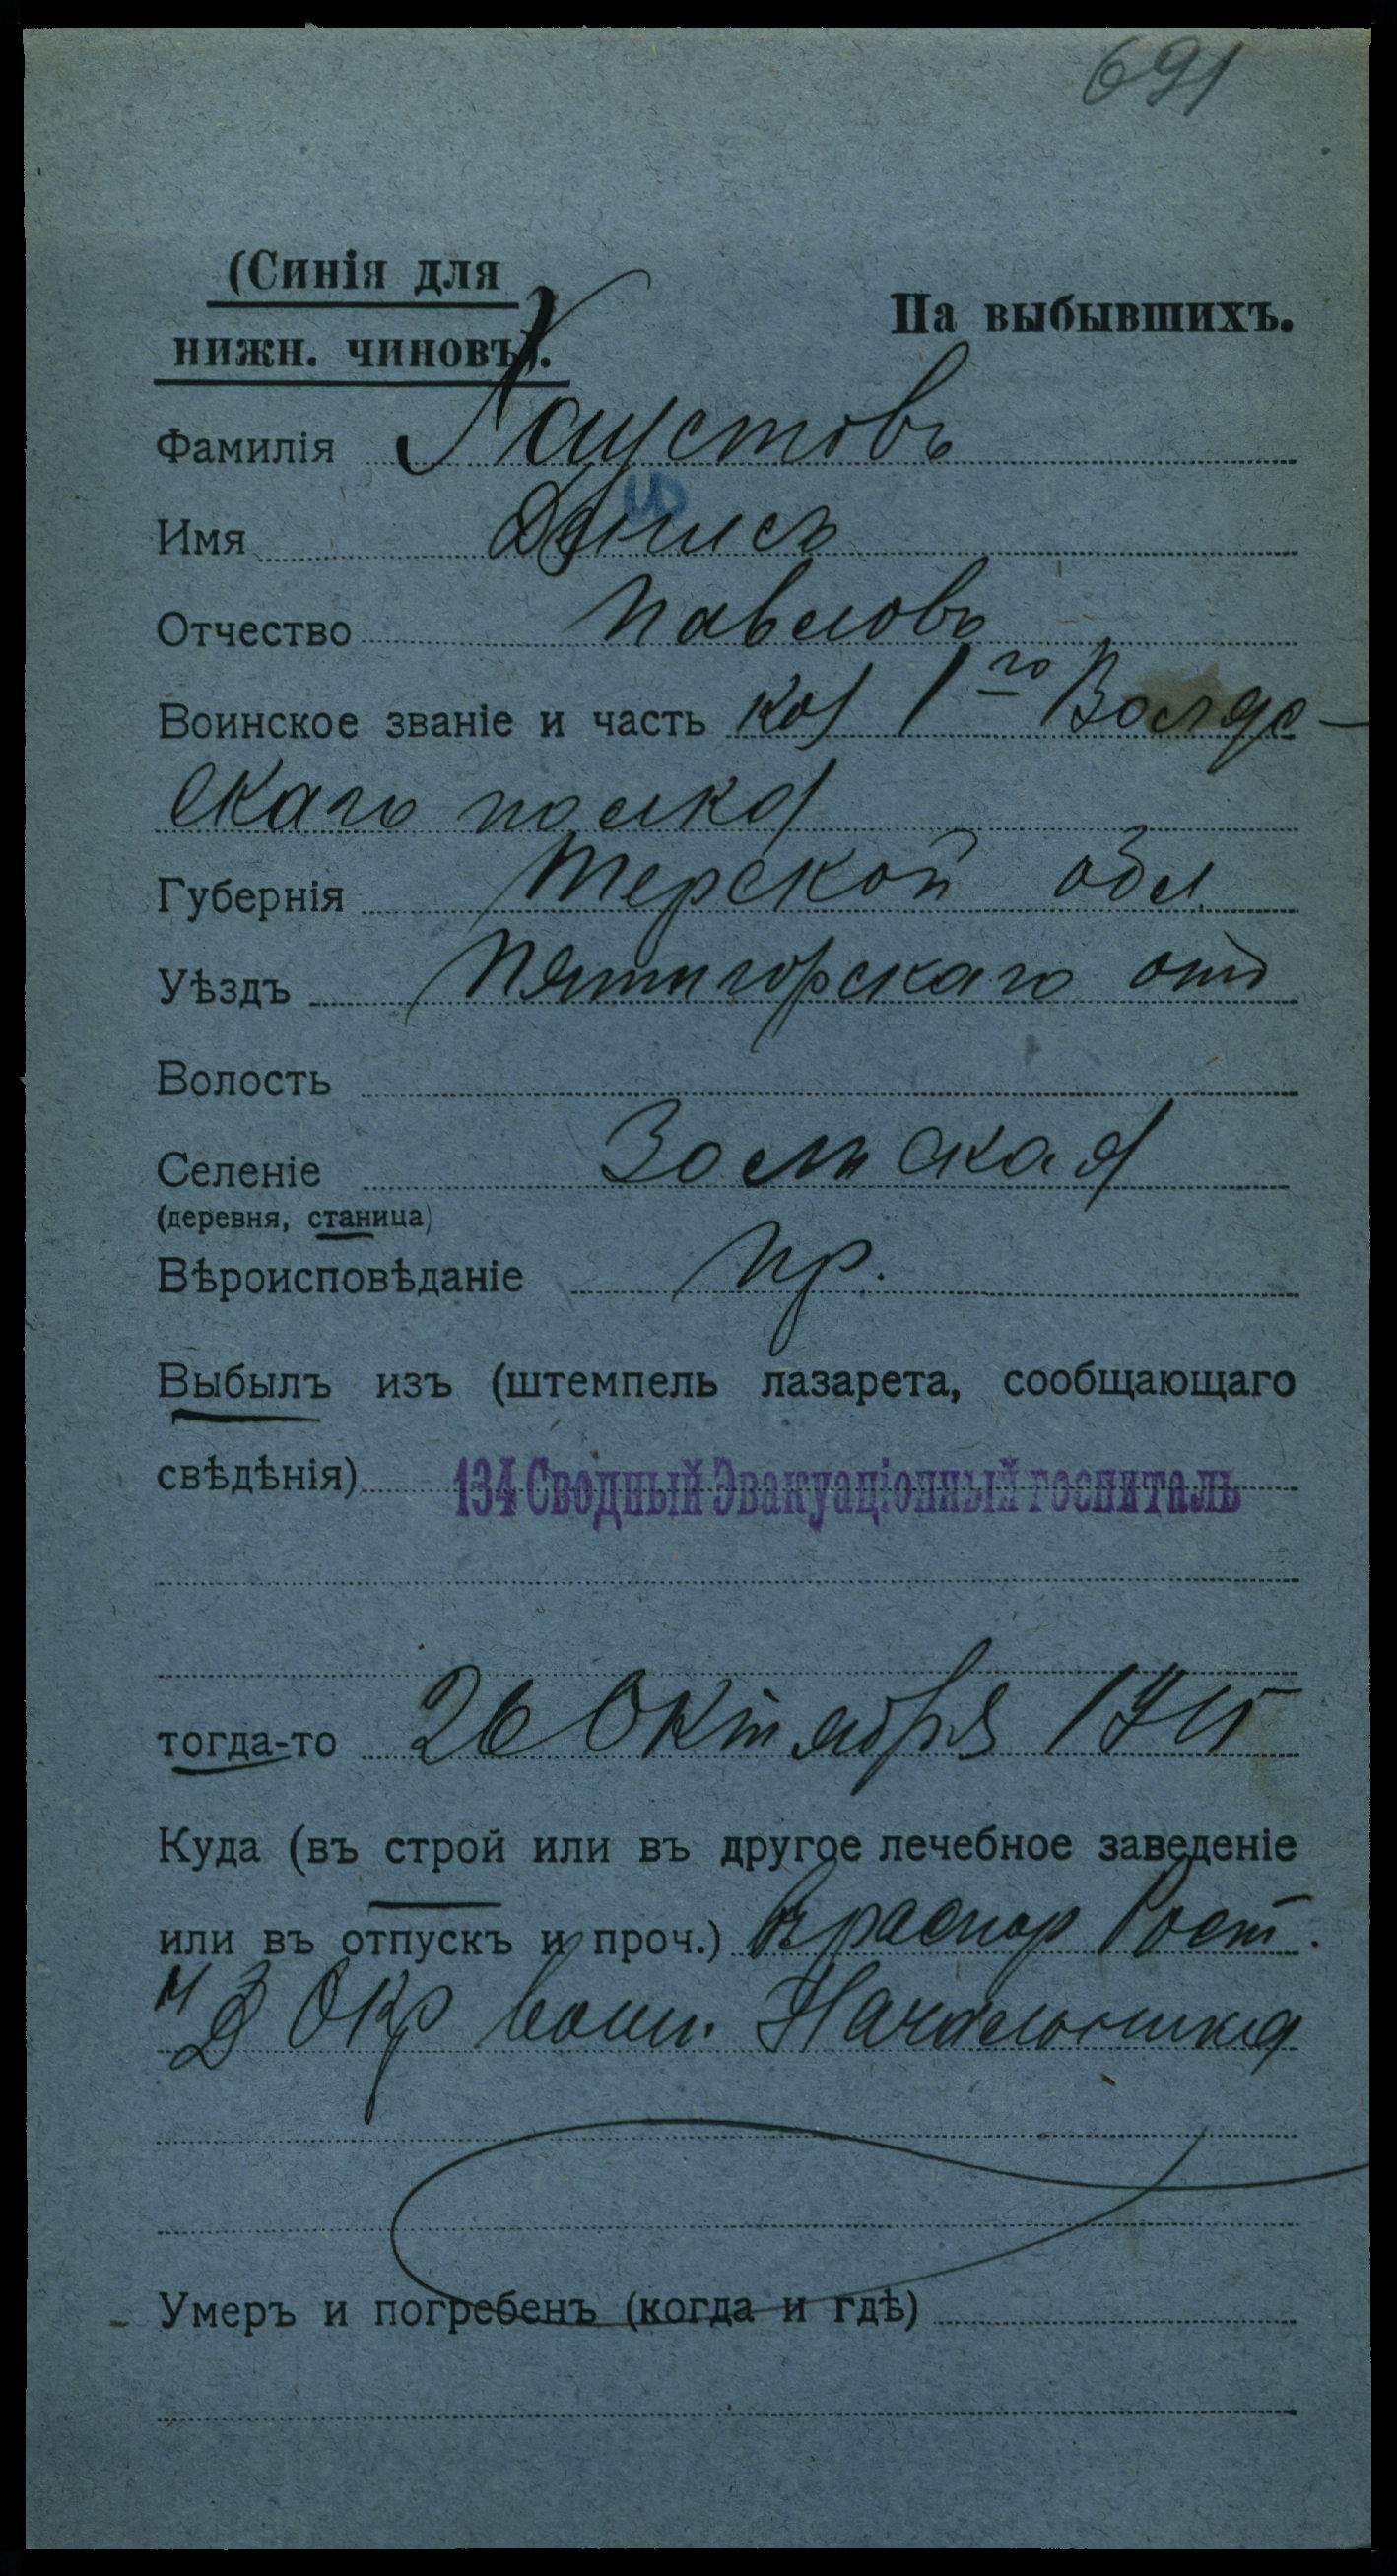 691
(Синія для
На выбывшихъ.
нижн. чиновъ).
Фамилія Хаустовъ
Имя Денисъ
Отчество Павловъ
Воинское званіе и часть каз 1го Волгс-
скаго полка
Губернія Терской обл
Уѣздъ Пятигорскаго отд
Волость
Селеніе Зольская
(деревня, станица)
Вѣроисповѣданіе пр.
Выбылъ изъ (штемпель лазарета, сообщающаго
свѣдѣнія) 134 Сводный Эвакуаціонный госпиталь
тогда-то 26 Октября 1915
Куда (въ строй или въ другое лечебное заведеніе
или въ отпускъ и проч.) в распор Рост.
Окр воин. Начальника
Умеръ и погребенъ (когда и гдѣ)